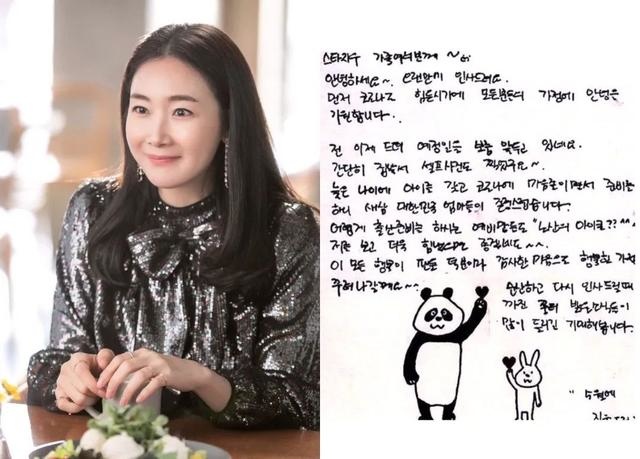 스타지우 가족여러분께 ~
안녕하세요~. 오랜만에 인사드려요.
먼저 코로나로 힘든시기에 모든분들의 가정에 안녕을
기원합니다.
전 이제 드뎌 예정일을 보름 앞두고 있네요.
간단히 집에서 셀프사진도 찍었구요~
늦은 나이에 아이를 갖고 코로나에 마음졸이면서 준비를
하니 새삼 대한민국 엄마들이 존경스럽습니다.
어렵게 출산준비를 하시는 예비맘들도 "노산의 아이콘?? ^^
저를 보고 더욱 힘내시길
이 모든 행복이 덕분이라 감사한 마음으로 행복한 가정
출산하고 다시 인사드릴때
까진 좋은
많이 들리길 기대해봅니다.
" 5월에